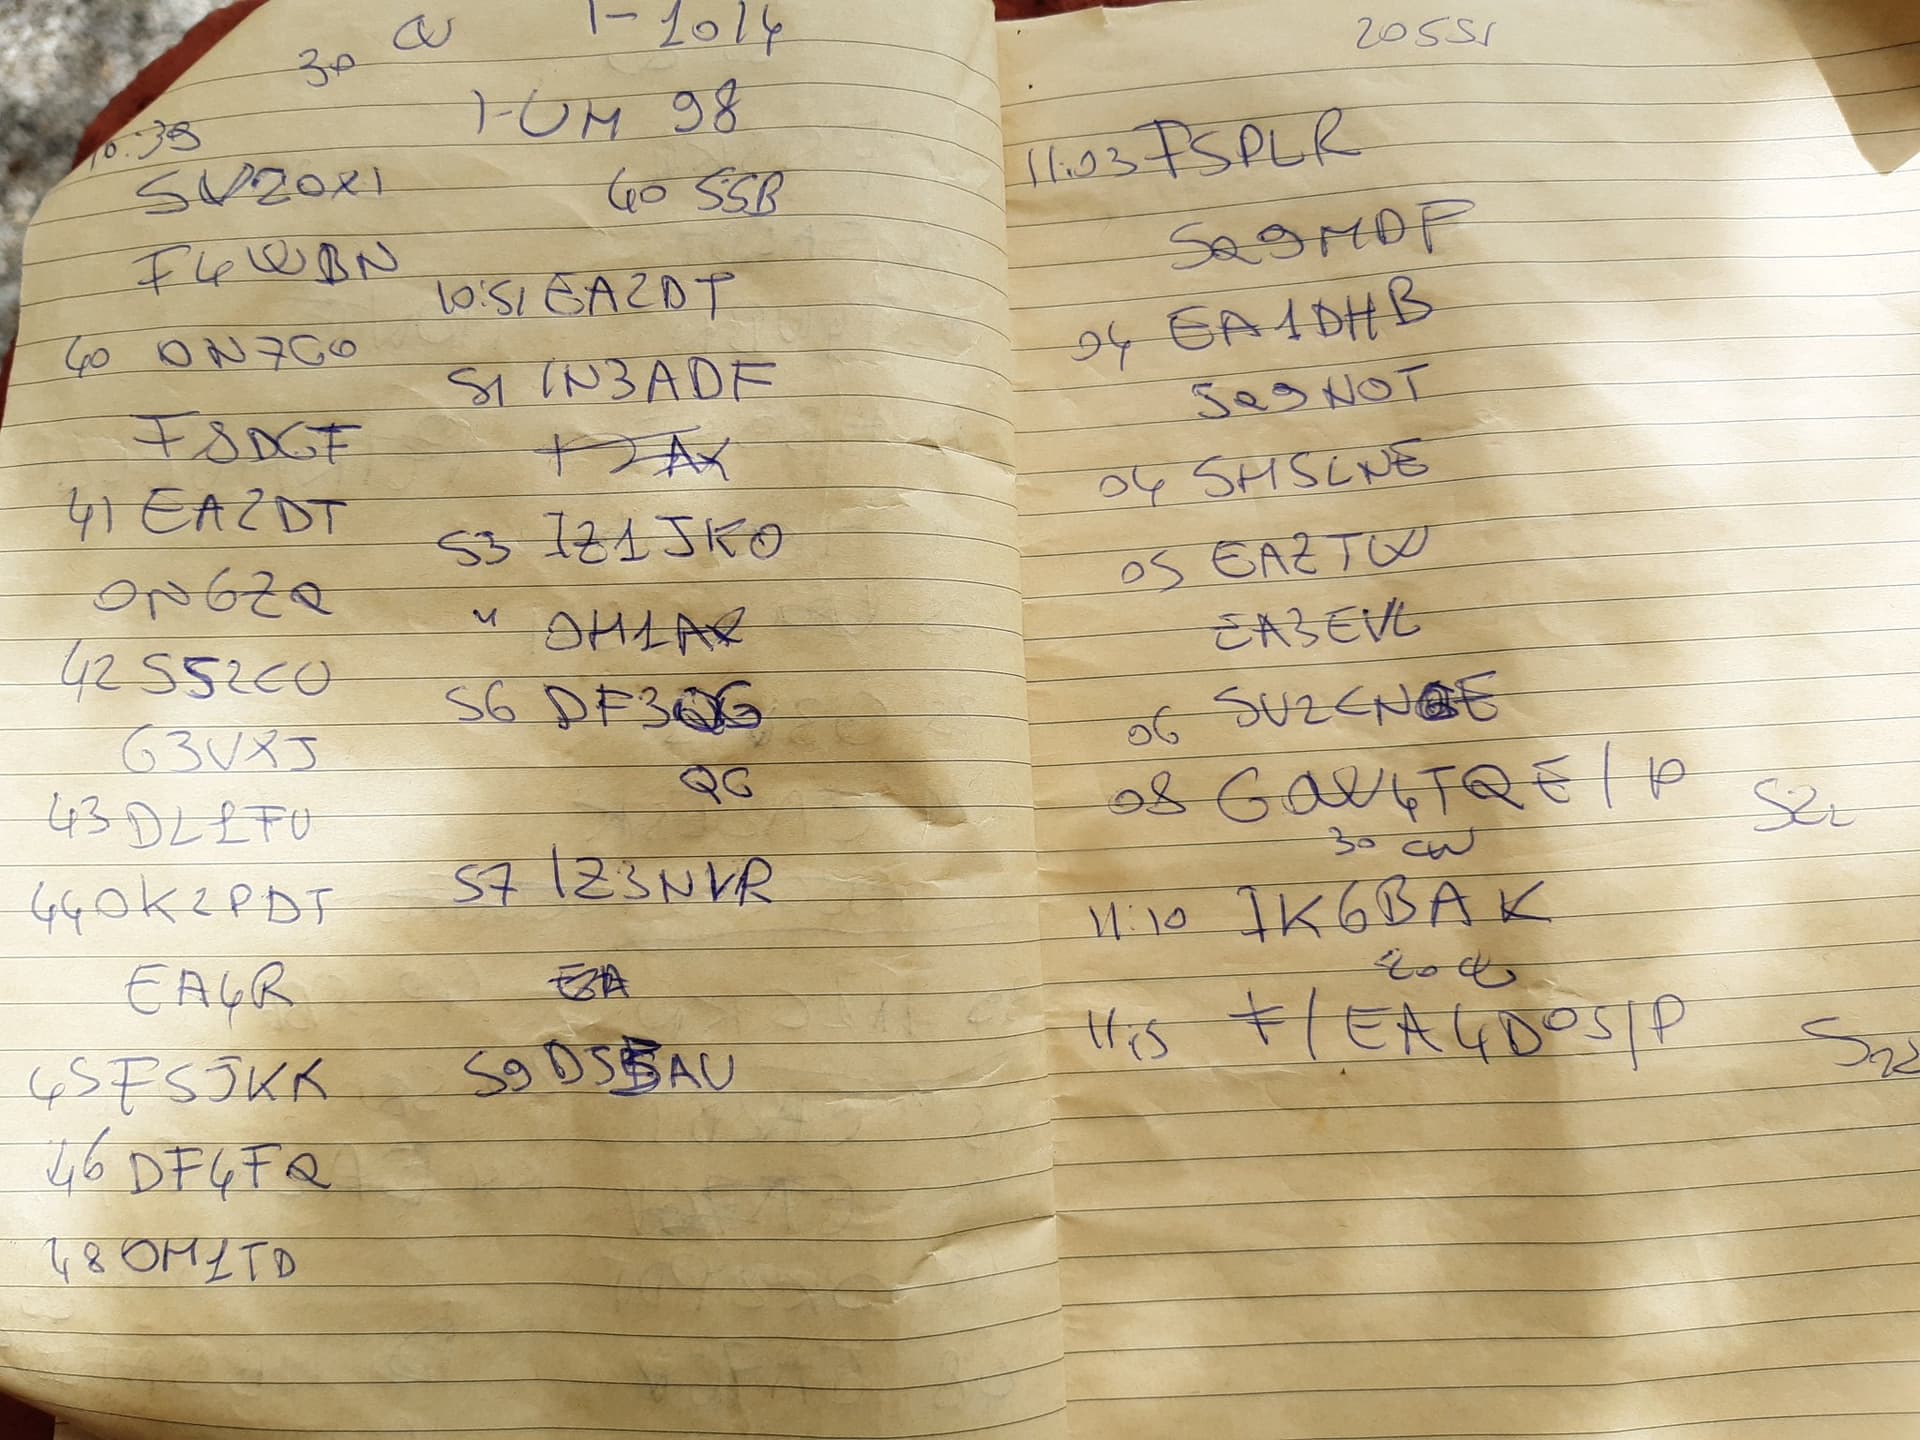 30 CW I-1014
I-UM 98
10:39
SV2OXI
F4WBN
40 ON7GO
F8DGF
41 EA2DT
ON6ZQ
42 S52CU
G3VXJ
43 DL1FU
44 OK2PDT
EA4R
45 F5JKK
46 DF4FQ
48 OM1TD
40 SSB
10:51 EA2DT
51 IN3ADF
53 IZ1JKO
" OH1
56 DF3QG
QG
57 IZ3NVR
EA
59 AU
20 SSB
11:03 F5PLR
SQ9MDF
04 EA1DHB
SQ9NOT
04 SM5LNE
05 EA2TW
EA3EVL
06 SV2CNE
08 GW4TQE/P S2S
30 CW
11:10 IK6BAK
20 CW
11:15 F/EA4DOS/P S2S